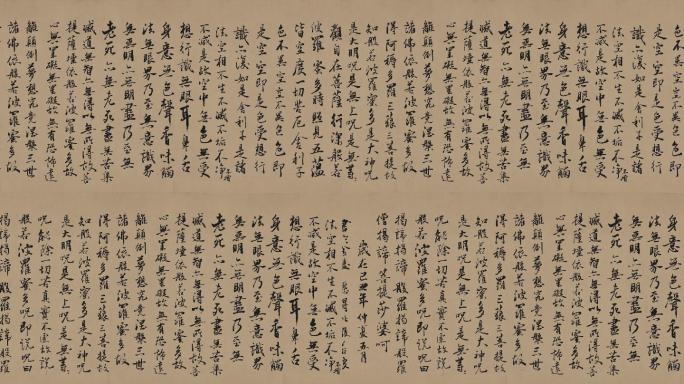 色不異空空不異色色即
是空空即是色受想行
識亦復如是舍利子是諸
法空相不生不滅不垢不净不增
不減是故空中無色無受
想行識無眼耳鼻舌
身意無色聲香味觸
法無眼界乃至無意識界
無無明亦無明盡乃至無
老死亦無老死盡無苦集
滅道無智亦無得以無所得故菩
提薩埵依般若波羅蜜多故
心無罣礙無罣礙故無有恐怖遠
離顛倒夢想究竟涅槃三世
諸佛依般若波羅蜜多故
得阿耨多羅三藐三菩提故
知般若波羅蜜多是大神咒
是大明咒是無上咒是無等
觀自在菩薩行深般若
波羅蜜多時照見五蘊
皆空度一切苦厄舍利子
色不異空空不異色色即
是空空即是色受想行
識亦復如是舍利子是諸
法空相不生不滅不垢不净不增
不減是故空中無色無受
想行識無眼耳鼻舌
身意無色聲香味觸
法無眼界乃至無意識界
無無明亦無明盡乃至無
老死亦無老死盡無苦集
滅道無智亦無得以無所得故菩
提薩埵依般若波羅蜜多故
心無罣礙無罣礙故無有恐怖遠
離顛倒夢想究竟涅槃三世
諸佛依般若波羅蜜多故
身意無色聲香味觸
法無眼界乃至無意識界
無無明亦無明盡乃至無
老死亦無老死盡無苦集
滅道無智亦無得以無所得故菩
提薩埵依般若波羅蜜多故
心無罣礙無罣礙故無有恐怖遠
離顛倒夢想究竟涅槃三世
諸佛依般若波羅蜜多故
得阿耨多羅三藐三菩提故
知般若波羅蜜多是大神咒
是大明咒是無上咒是無等
咒能除一切苦真實不虛故說
般若波羅蜜多咒即說咒曰
揭諦揭諦般羅揭諦般羅
僧揭諦菩提莎婆呵
歲在己丑年仲夏吉月
法空相不生不滅不垢不净不增
不減是故空中無色無受
想行識無眼耳鼻舌
身意無色聲香味觸
法無眼界乃至無意識界
無無明亦無明盡乃至無
老死亦無老死盡無苦集
滅道無智亦無得以無所得故菩
提薩埵依般若波羅蜜多故
心無罣礙無罣礙故無有恐怖遠
離顛倒夢想究竟涅槃三世
諸佛依般若波羅蜜多故
得阿耨多羅三藐三菩提故
知般若波羅蜜多是大神咒
是大明咒是無上咒是無等
咒能除一切苦真實不虛故說
般若波羅蜜多咒即說咒曰
揭諦揭諦般羅揭諦般羅